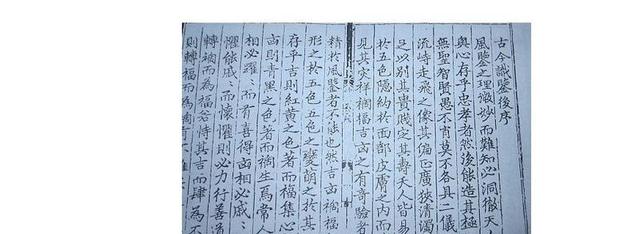 古今識鑒後序
風鑒之理微妙而難知必洞徹天人
奧心存乎忠孝者然後能造其極
無聖智賢愚不肖莫不各具一儀
流峙走飛之像其偏正廣狹清濁
足以別其貴賤定其壽夭人皆易
於五色隱約於面部皮膚之內而
見其災祥禍福吉凶之有奇驗者
精於風鑒者不能也然吉凶禍福
形之於五色五色之變萌之於其
存乎吉則紅黃之色著而福集心
凶則青黑之色著而禍生焉常人
相必躍〻而有喜得凶相必戚〻
懼能戚〻而懷懼則必力行善
轉禍而為福若恃其吉而肆為不
則轉福而為禍